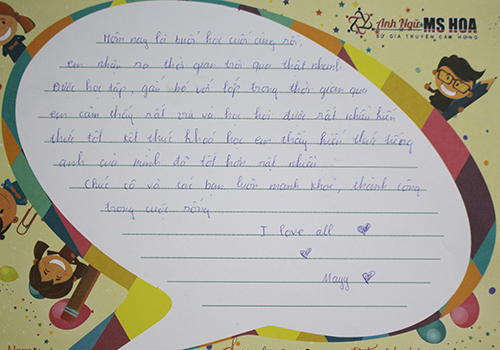 Anh Ngữ MS HOA
SỨ GIẢ TRUYỀN CẢM HỨNG
Hôm nay là buổi học cuối cùng rồi,
em nhận ra thời gian trôi qua thật nhanh.
Được học tập, gắn bó với lớp trong thời gian qua
em cảm thấy rất vui và học hỏi được rất nhiều kiến
thức tốt. Kết thúc khoá học em thấy kiến thức tiếng
anh của mình đã tốt hơn rất nhiều.
Chúc cô và các bạn luôn mạnh khỏe, thành công
trong cuộc sống
I love all
Mayy